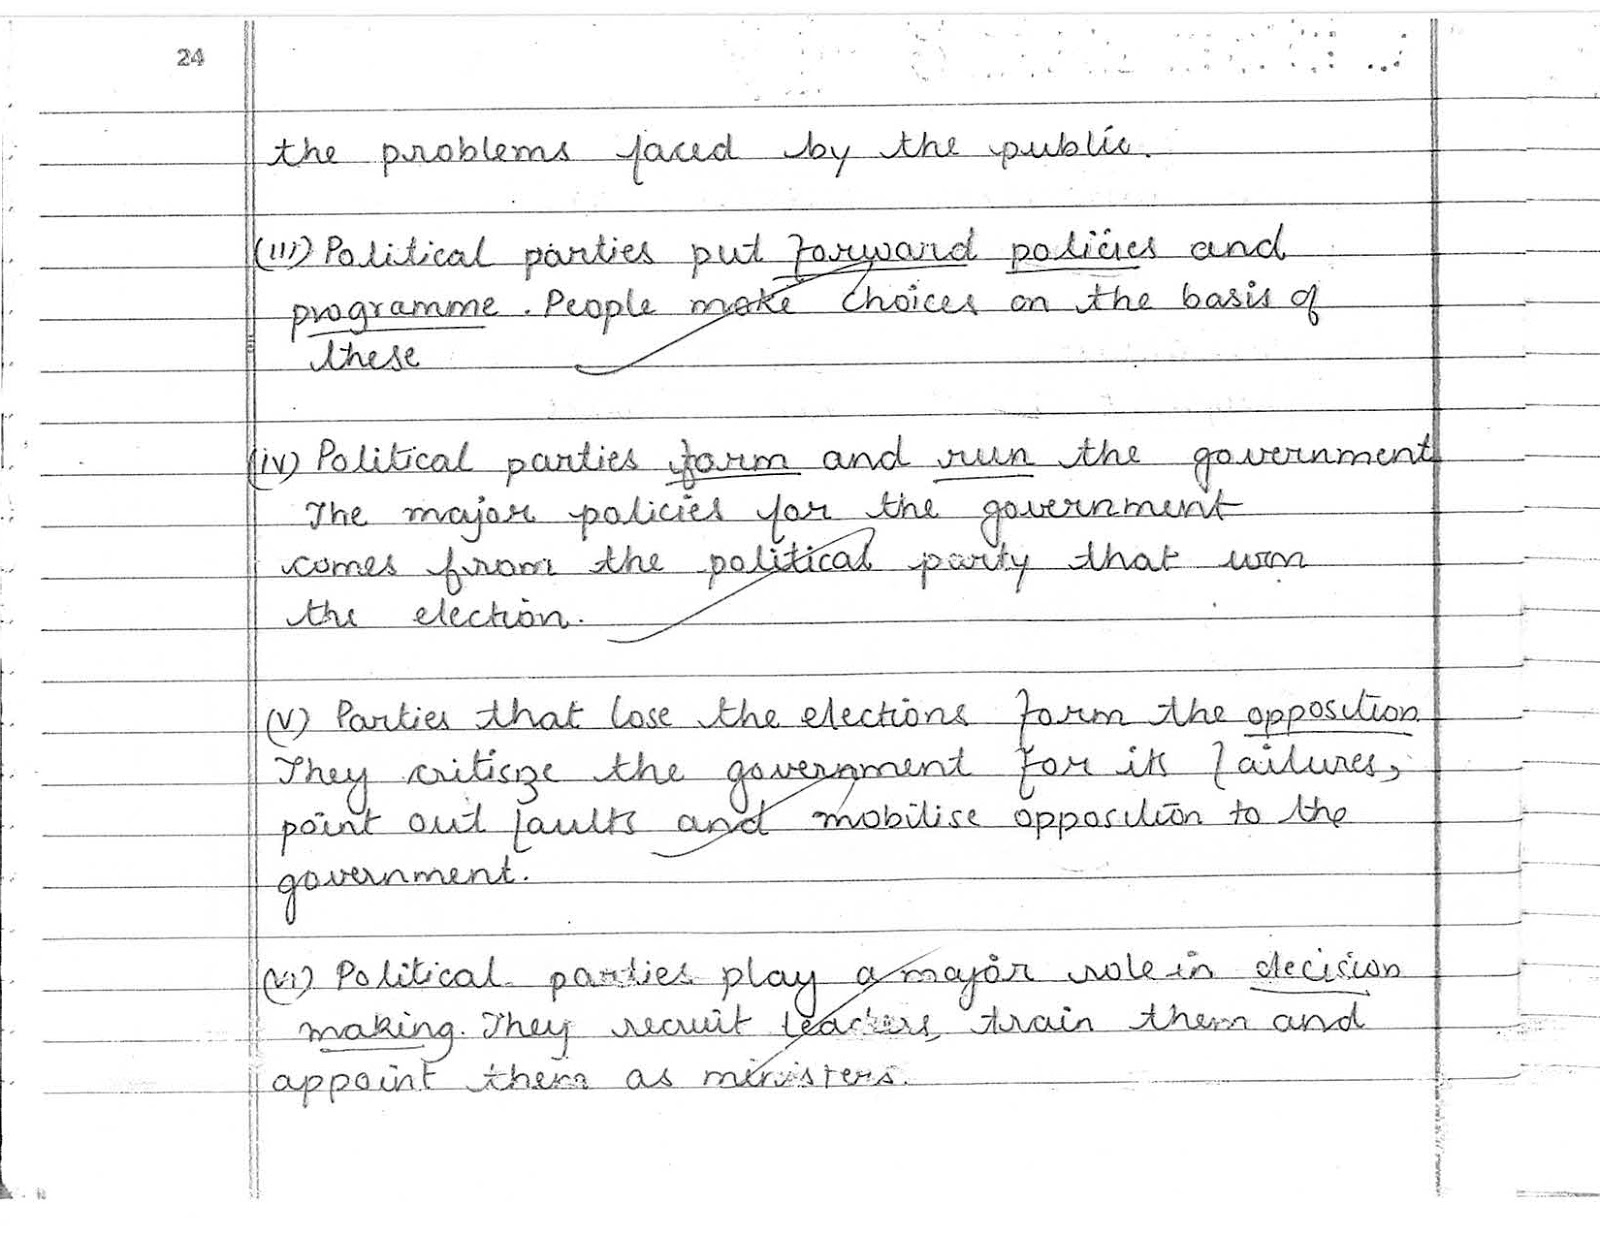 24
the problems faced by the public.
(iii) Political parties put forward policies and
programme. People make choices on the basis of
these
(iv) Political parties form and run the government
The major policies for the government
comes from the political party that won
the election.
(v) Parties that lose the elections form the opposition.
They critisize the government for its failures,
point out faults and mobilise opposition to the
government.
(vi) Political parties play a major role in decision
making. They recruit leaders, train them and
appoint them as ministers.